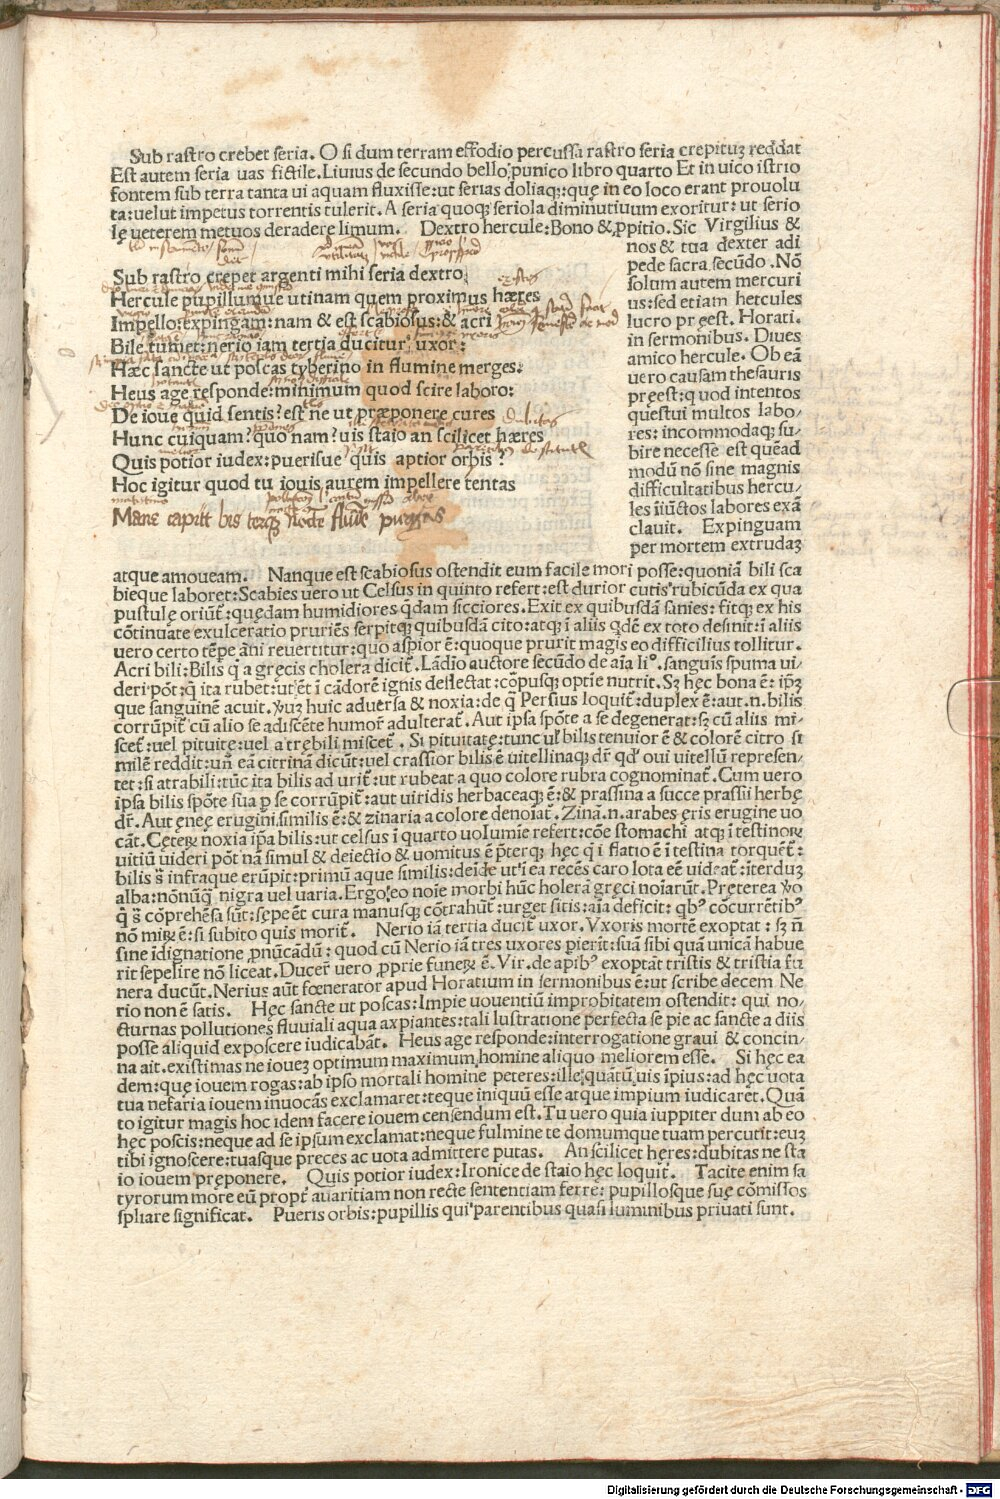 Sub rastro crebet seria. O si dum terram effodio percussa rastro seria crepituꝫ reddat
Est autem seria uas fictile. Liuius de secundo bello punico libro quarto Et in uico istrio
fontem sub terra tanta ui aquam fluxisse: ut serias doliaqꝫ: quę in eo loco erant prouolu
ta: uelut impetus torrentis tulerit. A seria quoqꝫ seriola diminutiuum exoritur: ut serio
lę ueterem metuos deradere limum. Dextro hercule: Bono & ꝓpitio. Sic Virgilius &
nos & tua dexter adi
pede sacra secūdo. Nō
solum autem mercuri
us: sed etiam hercules
lucro pręest. Horati.
in sermonibus. Diues
amico hercule. Ob eā
uero causam thesauris
pręest: quod intentos
questui multos labo-
res: incommodaqꝫ su-
bire necesse est quēad
modū nō sine magnis
difficultatibus hercu-
les iiūctos labores exā
clauit. Expinguam
per mortem extrudaꝫ
Sub rastro crepet argenti mihi seria dextro
Hercule pupillumue utinam quem proximus hæres
Impello: expingam: nam & est scabiosus: & acri
Bile tumet: nerio iam tertia ducitur uxor:
Hæc sancte ut poscas tyberino in flumine merges:
Heus age responde: minimum quod scire laboro:
De ioue quid sentis? est ne ut præponere cures
Hunc cuiquam? quo nam? uis staio an scilicet hæres
Quis potior iudex: puerisue quis aptior orbis?
Hoc igitur quod tu iouis aurem impellere tentas
Mane capitt bis terqꝫ Nocte flumie purgas
atque amoueam. Nanque est scabiosus ostendit eum facile mori posse: quoniā bili sca
bieque laboret: Scabies uero ut Celsus in quinto refert: est durior cutis rubicūda ex qua
pustulę oriūt̄: quędam humidiores q̄dam sicciores. Exit ex quibusdā sanies: fitqꝫ ex his
cōtinuate exulceratio pruriēs serpitqꝫ quibusdā cito: atqꝫ ī aliis qdē ex toto desinit: ī aliis
uero certo tēpe āni reuertitur: quo aspior ē: quoque prurit magis eo difficilius tollitur.
Acri bili: Bilis q̄ a gręcis cholera dicit̄. Lādio auctore secūdo de aīa li°. sanguis spuma ui-
deri pōt: q̄ ita rubet: ut ēt ī cādorē ignis deflectat: cōpusqꝫ optīe nutrit. Sꝫ hęc bona ē: ip̄ꝫ
que sanguinē acuit. Veꝝ huic aduersa & noxia: de q̄ Persius loquit̄: duplex ē: aut.n. bilis
corrūpit̄ cū alio se adiscēte humor̄ adulterat̄. Aut ipsa spōte a se degenerat: sꝫ cū aliis mi-
scet̄: uel pituitę: uel a trębili miscet̄. Si pituitatę: tunc ul' bilis tenuior ē & colorē citro si
milē reddit: un̄ eā citrinā dicūt: uel crassior bilis ē uitellinaqꝫ dr̄ qd' oui uitellū represen-
tet: si atrabili: tūc ita bilis ad urit̄: ut rubeat a quo colore rubra cognominat̄. Cum uero
ipsa bilis spōte sūa p se corrūpit̄: aut uiridis herbaceaqꝫ ē: & prassina a succe prassii herbę
dr̄. Aut ęneę erugini similis ē: & zinaria a colore denoīat̄. Zinā.n. arabes ęris erugine uo
cāt. Cęteꝝ noxia ip̄a bilis: ut celsus ī quarto uolumīe refert: cōe stomachi atqꝫ ī testinoꝝ
uitiū uideri pōt nā simul & deiectio & uomitus ē p̄terqꝫ hęc q̄ ī flatio ē ī testina torquēt̄:
bilis s̄ infraque erūpit: primū aque similis: deīde ut ī ea recēs caro lota eē uideat̄: īterduꝫ
alba: nōnūq̄ nigra uel uaria. Ergo eo noīe morbi hūc holerā gręci noīarūt. Pręterea ꝟo
q̄ s̄ cōprehēsa sūt: sępe ēt cura manusqꝫ cōtrahūt̄: urget sitis: aīa deficit: qbꝰ cōcurrētibꝰ
nō miꝝ ē: si subito quis morit̄. Nerio iā tertia ducit̄ uxor. Vxoris mortē exoptat: sꝫ n̄
sine īdignatione ꝓnūcādū: quod cū Nerio iā tres uxores pierīt: suā sibi quā unicā habue
rit sepelire nō liceat. Ducer̄ uero ꝓprie funeꝝ ē. Vir. de apibꝰ exoptāt tristis & tristia fu
nera ducūt. Nerius aūt fœnerator apud Horatium in sermonibus ē: ut scribe decem Ne
rio non ē satis. Hęc sancte ut poscas: Impie uouentiū improbitatem ostendit: qui no-
cturnas pollutiones fluuiali aqua axpiantes: tali lustratione perfecta se pie ac sancte a diis
posse aliquid exposcere iudicabāt. Heus age responde: interrogatione graui & concin-
na ait. existimas ne iouez optimum maximum homine aliquo meliorem esse. Si hęc ea
dem: quę iouem rogas: ab ipso mortali homine peteres: ille quātūuis īpius: ad hęc uota
tua nefaria iouem inuocās exclamaret: teque iniquū esse atque impium iudicaret. Quā
to igitur magis hoc idem facere iouem censendum est. Tu uero quia iuppiter dum ab eo
hęc poscis: neque ad se ipsum exclamat: neque fulmine te domumque tuam percutit: euꝫ
tibi ignoscere: tuasque preces ac uota admittere putas. An scilicet hęres: dubitas ne sta
io iouem pręponere. Quis potior iudex: Ironice de staio hęc loquit̄. Tacite enim sa
tyrorum more eū propt̄ auaritiam non recte sententiam ferre: pupillosque suę cōmissos
spliare significat. Pueris orbis: pupillis qui parentibus quasi luminibus priuati sunt.
Digitalisierung gefördert durch die Deutsche Forschungsgemeinschaft - DFG